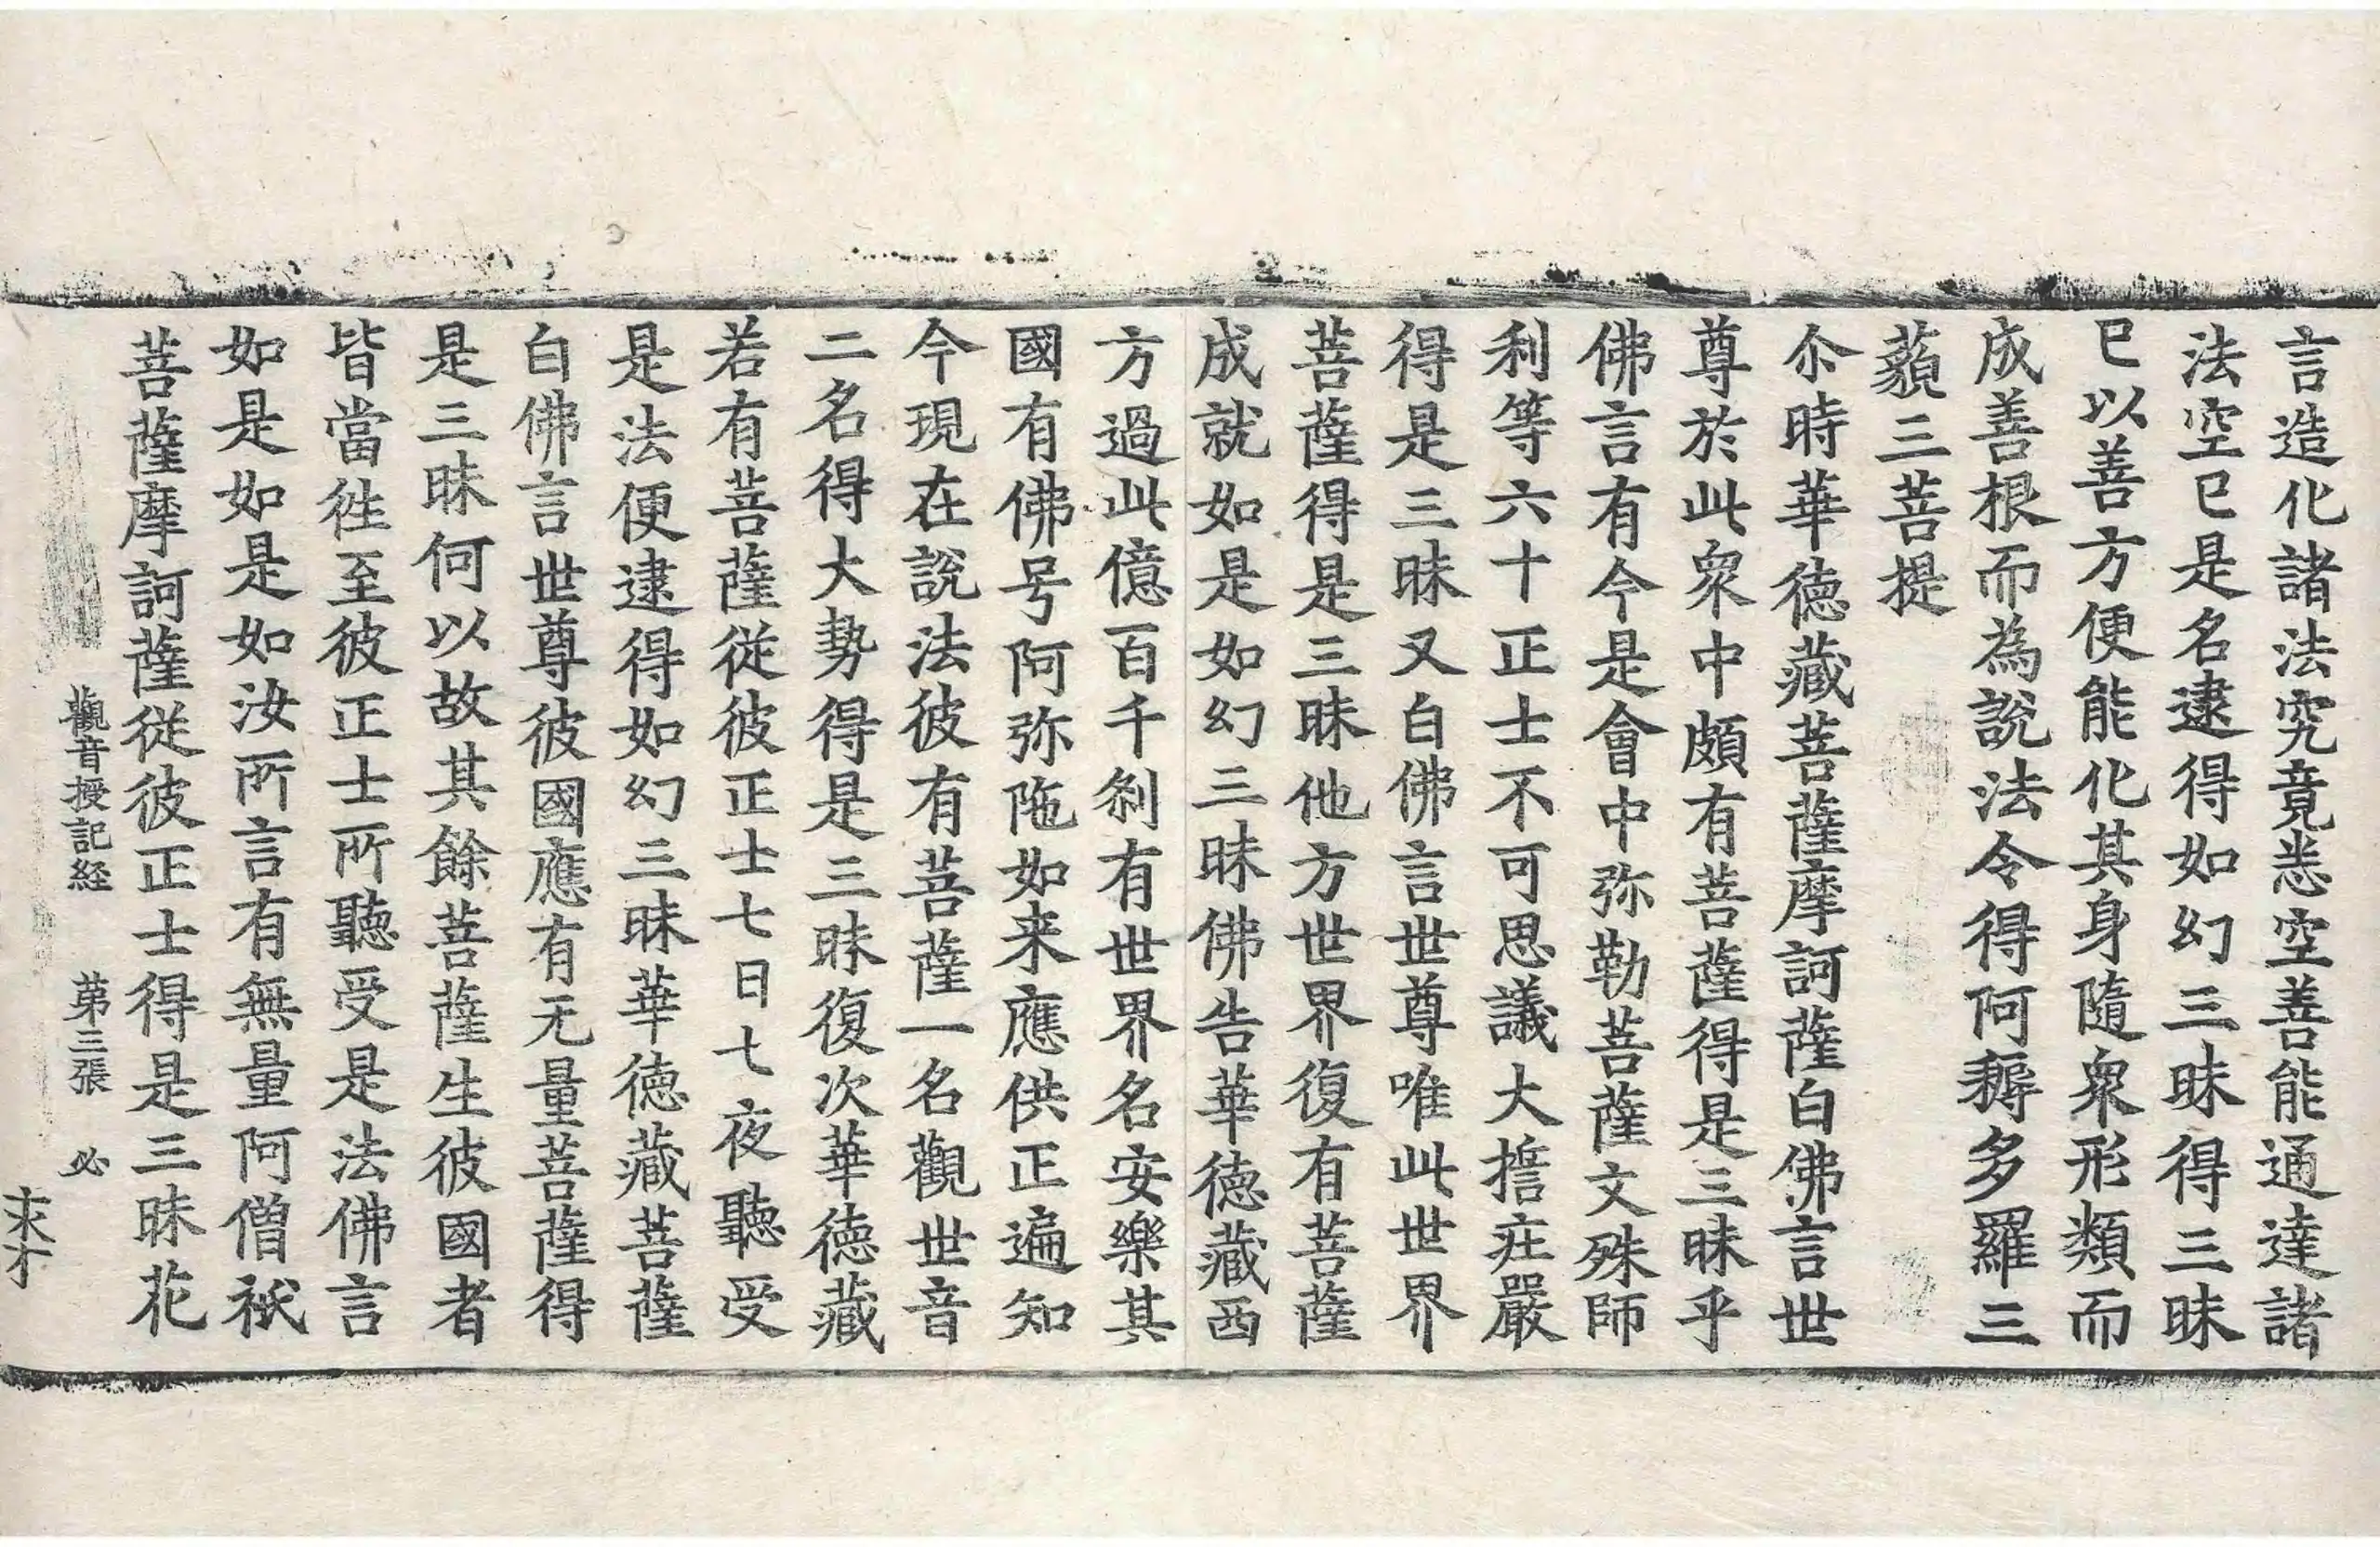 言造化諸法究竟悉空善能通達諸
法空已是名逮得如幻三昧得三昧
已以善方便能化其身隨衆形類而
成善根而為說法令得阿耨多羅三
藐三菩提
尒時華德藏菩薩摩訶薩白佛言世
尊於此衆中頗有菩薩得是三昧乎
佛言有今是會中弥勒菩薩文殊師
利等六十正士不可思議大擔庄嚴
得是三昧又白佛言世尊唯此世界
菩薩得是三昧他方世界復有菩薩
成就如是如幻三昧佛告華德藏西
方過此億百千剎有世界名安樂其
國有佛号阿弥陁如来應供正遍知
今現在說法彼有菩薩一名觀世音
二名得大勢得是三昧復次華德藏
若有菩薩従彼正士七日七夜聽受
是法便逮得如幻三昧華德藏菩薩
白佛言世尊彼國應有无量菩薩得
是三昧何以故其餘菩薩生彼國者
皆當徃至彼正士所聽受是法佛言
如是如是如汝所言有無量阿僧祇
菩薩摩訶薩従彼正士得是三昧花
觀音授記経 第三張 必
求才